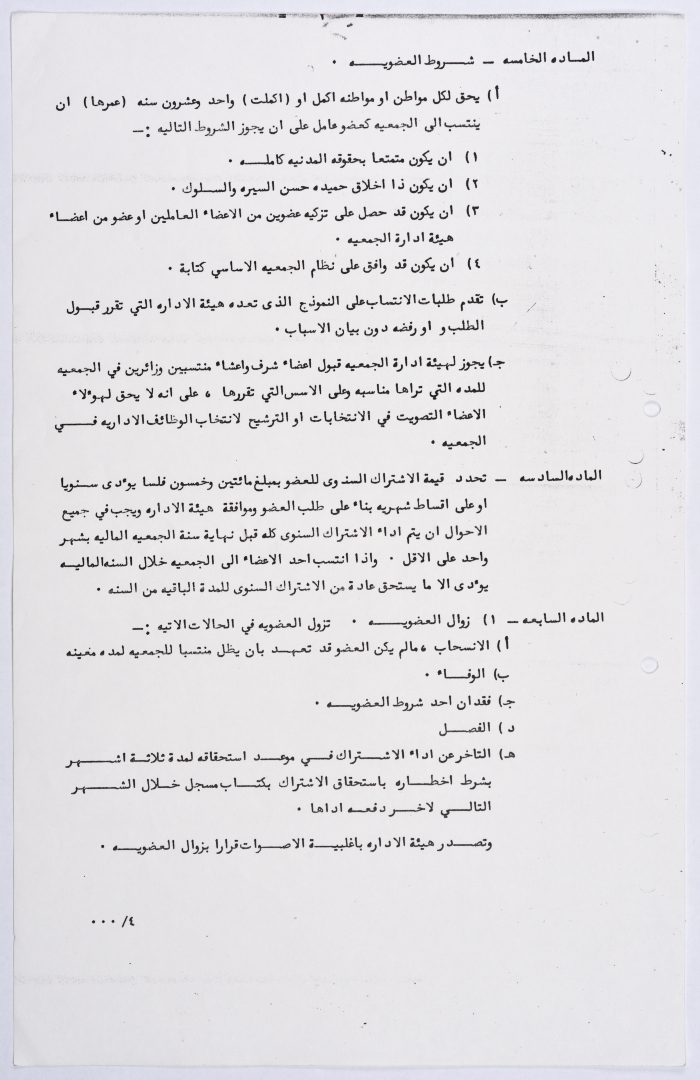 الماده الخامسه – شروط العضويه .
أ) يحق لكل مواطن او مواطنه اكمل او (اكملت) واحد وعشرون سنه (عمرها) ان
ينتسب الى الجمعيه كعضو عامل على ان يجوز الشروط التاليه :–
١) ان يكون متمتعا بحقوقه المدنيه كامله .
٢) ان يكون ذا اخلاق حميده حسن السيره والسلوك .
٣) ان يكون قد حصل على تزكيه عضوين من الاعضاء العاملين او عضو من اعضاء
هيئة ادارة الجمعيه .
٤) ان يكون قد وافق على نظام الجمعيه الاساسي كتابة .
ب) تقدم طلبات الانتساب على النموذج الذى تعده هيئة الاداره التي تقرر قبول
الطلب و او رفضه دون بيان الاسباب .
جـ) يجوز لهيئة ادارة الجمعيه قبول اعضاء شرف واعشاء منتسبين وزائرين في الجمعيه
للمده التي تراها مناسبه وعلى الاسس التي تقررها ، على انه لا يحق لهوءلاء
الاعضاء التصويت في الانتخابات او الترشيح لانتخاب الوظائف الاداريه في
الجمعيه .
الماده السادسه – تحدد قيمة الاشتراك السنوى للعضو بمبلغ مائتين وخمسون فلسا يوءدى سنويا
او على اقساط شهريه بناء على طلب العضو وموافقة هيئة الاداره ويجب في جميع
الاحوال ان يتم اداء الاشتراك السنوى كله قبل نهاية سنة الجمعيه الماليه بشهر
واحد على الاقل . واذا انتسب احد الاعضاء الى الجمعيه خلال السنه الماليه
يوءدى الا ما يستحق عادة من الاشتراك السنوى للمدة الباقيه من السنه .
الماده السابعه – ١) زوال العضويه . تزول العضويه في الحالات الاتيه :–
أ) الانسحاب ، مالم يكن العضو قد تعهد بان يظل منتسبا للجمعيه لمده معينه
ب) الوفاء .
جـ) فقدان احد شروط العضويه .
د) الفصل
هـ) التاخر عن اداء الاشتراك في موعد استحقاقه لمدة ثلاثة اشهر
بشرط اخطاره باستحقاق الاشتراك بكتاب مسجل خلال الشهر
التالي لاخر دفعه اداها .
وتصدر هيئة الاداره باغلبية الاصوات قرارا بزوال العضويه .
٤/ ...